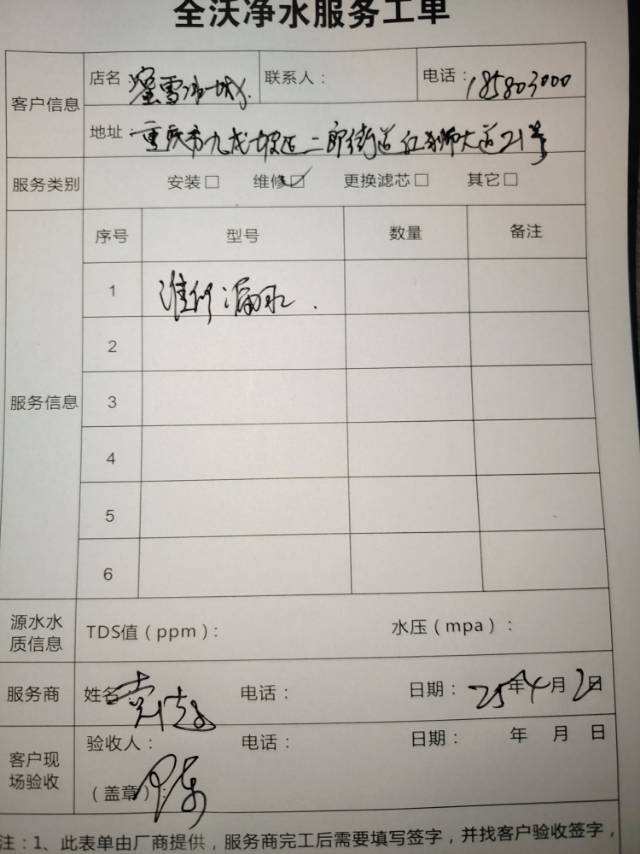 全沃净水服务工单
客户信息
店名 蜜雪冰城
联系人：
电话：185803000
地址 重庆市九龙坡区二郎街道红狮大道21号
服务类别
安装□ 维修☑ 更换滤芯□ 其它□
服务信息
序号 型号 数量 备注
1 维修漏水.
2
3
4
5
6
源水水质信息
TDS值（ppm）： 水压（mpa）：
服务商
姓名 电话： 日期：25年4月2日
客户现场验收
验收人： 电话： 日期： 年 月 日
（盖章）：
注：1、此表单由厂商提供，服务商完工后需要填写签字，并找客户验收签字，